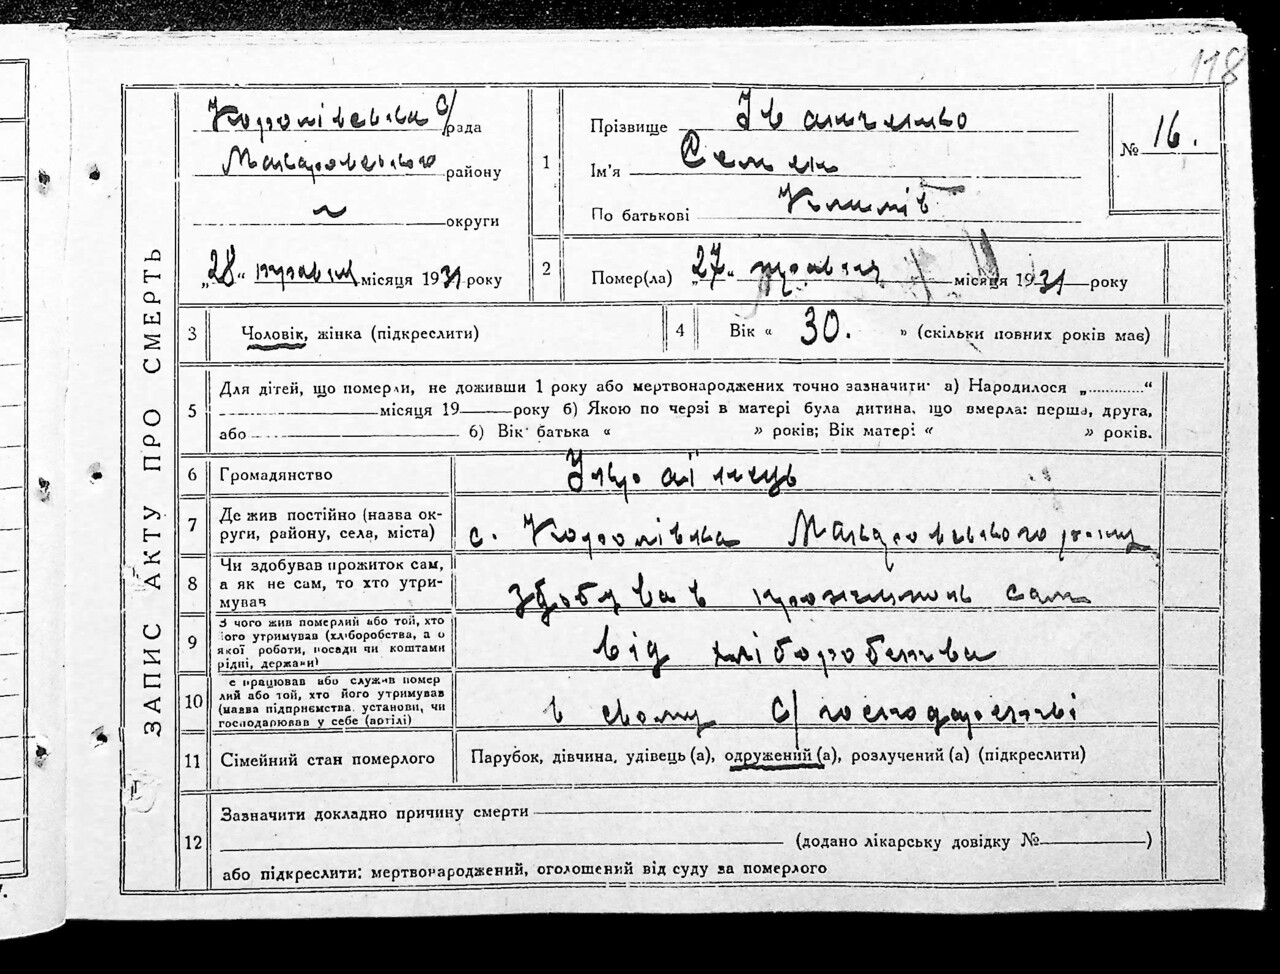 118
ЗАПИС АКТУ ПРО СМЕРТЬ
Королівська с/рада
Макаровського району
~ округи
„28“ травня місяця 1931 року
1
Прізвище Іванченко
Ім'я Семен
По батькові Климів
№ 16.
2
Помер(ла) „27“ травня місяця 1931 року
3 Чоловік, жінка (підкреслити)
4 Вік « 30. » (скільки повних років має)
5
Для дітей, що померли, не доживши 1 року або мертвонароджених точно зазначити· а) Народилося „............“
місяця 19 року б) Якою по черзі в матері була дитина, що вмерла: перша, друга,
або б) Вік батька « » років; Вік матері « » років.
6 Громадянство Українець
7 Де жив постійно (назва ок-
руги, району, села, міста) с. Королівка Макаровського р-ну
8 Чи здобував прожиток сам,
а як не сам, то хто утри-
мував здобував прожиток сам
9 З чого жив померлий або той, хто
його утримував (хліборобства, а о
якої роботи, посади чи коштами
рідні, держави) від хліборобства
10 е працював або служив помер
лий або той, хто його утримував
(назва підприємства, установи, чи
господарював у себе (артілі) в свому с/господарстві
11 Сімейний стан померлого Парубок, дівчина, удівець (а), одружений (а), розлучений (а) (підкреслити)
12
Зазначити докладно причину смерти
(додано лікарську довідку № )
або підкреслити: мертвонароджений, оголошений від суду за померлого